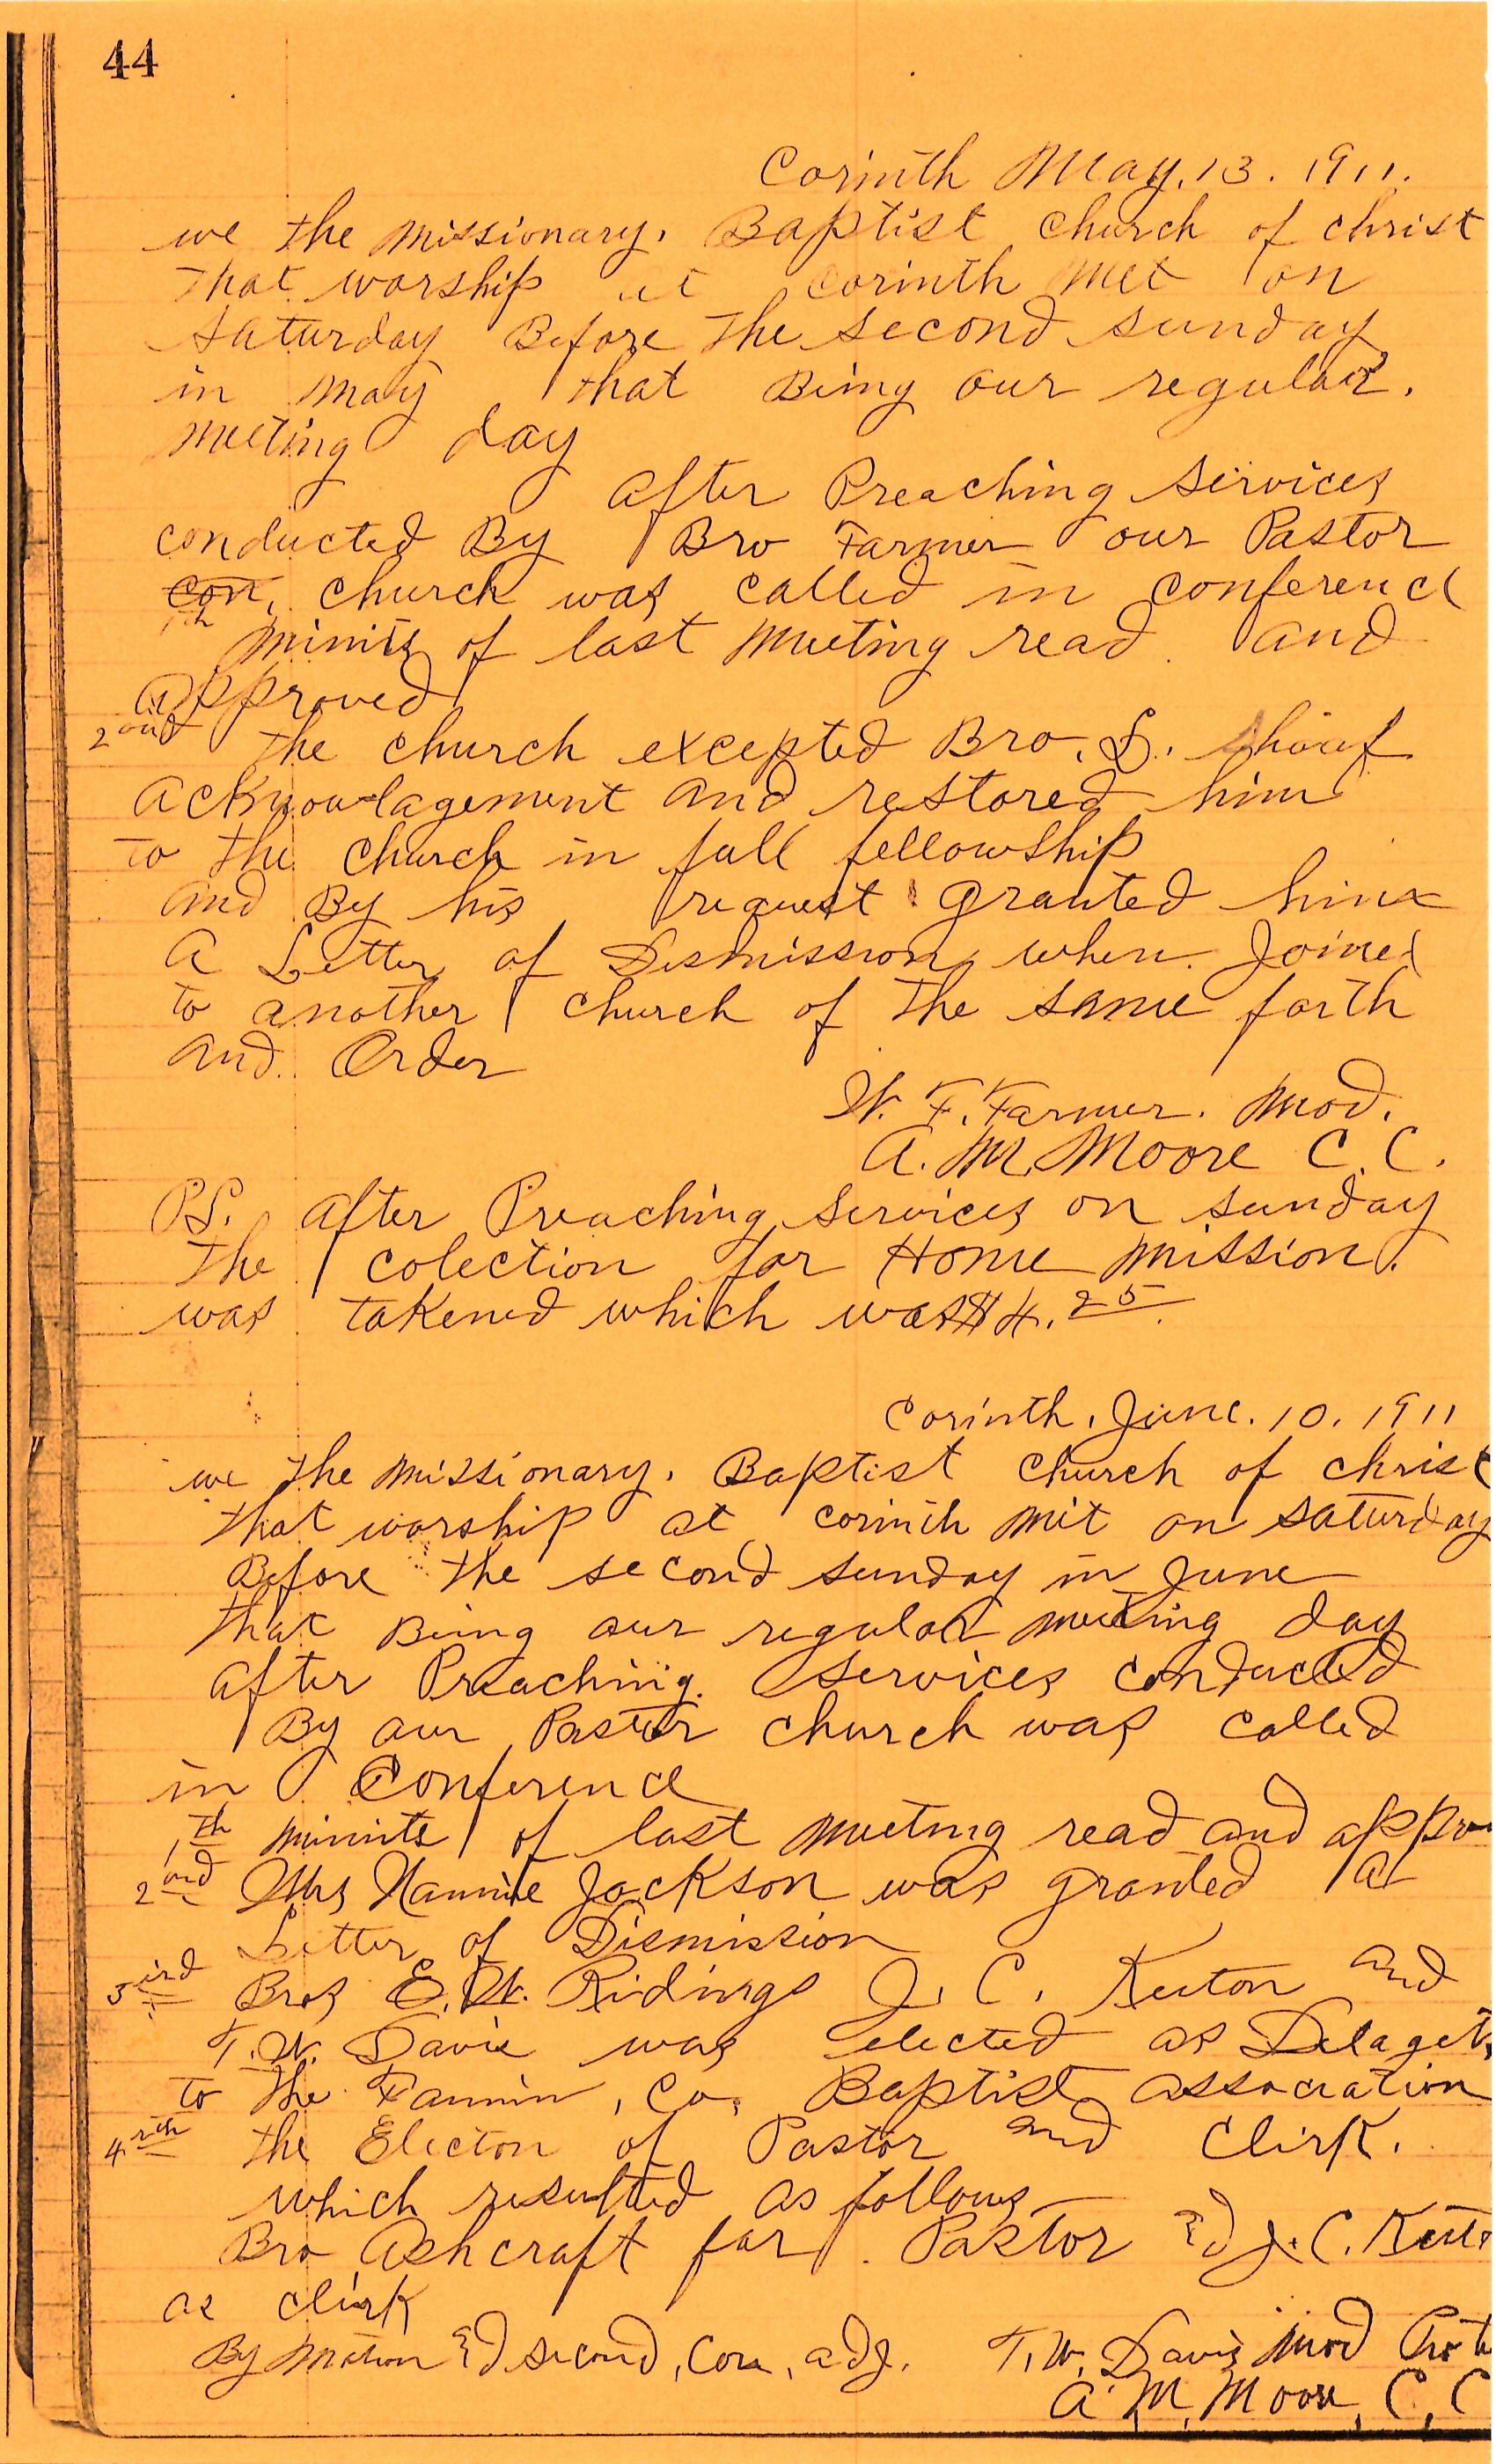 44
Corinth May. 13. 1911.
we the missionary. Baptist church of christ
that worship at corinth met on
saturday Before the second sunday
in May that Being our regular.
meeting day
after Preaching services
conducted By Bro Farmer our Pastor
con, church was called in conference
1th minits of last meeting read and
approved
2ond the church excepted Bro. S.
acknowlagement and restored him
to the church in full fellowship
and By his request granted him
a Letter of Dismission when Joined
to another church of the same faith
and Order
W. F. Farmer. Mod.
A. M. Moore C. C.
P.S. after Preaching services on sunday
the colection for Home mission.
was takened which was $4.25
Corinth, June. 10. 1911
we the missionary. Baptist church of christ
that worship at corinth mit on saturday
Before the second sunday in June
that Being our regular meeting day
after Preaching. services conducted
By our Pastor church was called
in Conference
1th minits of last meeting read and appro
2ond Mrs Nannie Jackson was granted a
Letter of Dismission
3ird Bros E. W. Ridings J. C. Keeton and
T. W. Davis was elected as Delagets
to the Fannin, Co, Baptist association
4rth the Electon of Pastor and Clirk.
which resulted as follows
Bro Ashcraft for Pastor &d J. C. Keeto
as clirk
By motion &d second, Con, adj. T. W. Davis Mod Pro te
A. M. Moore, C, C